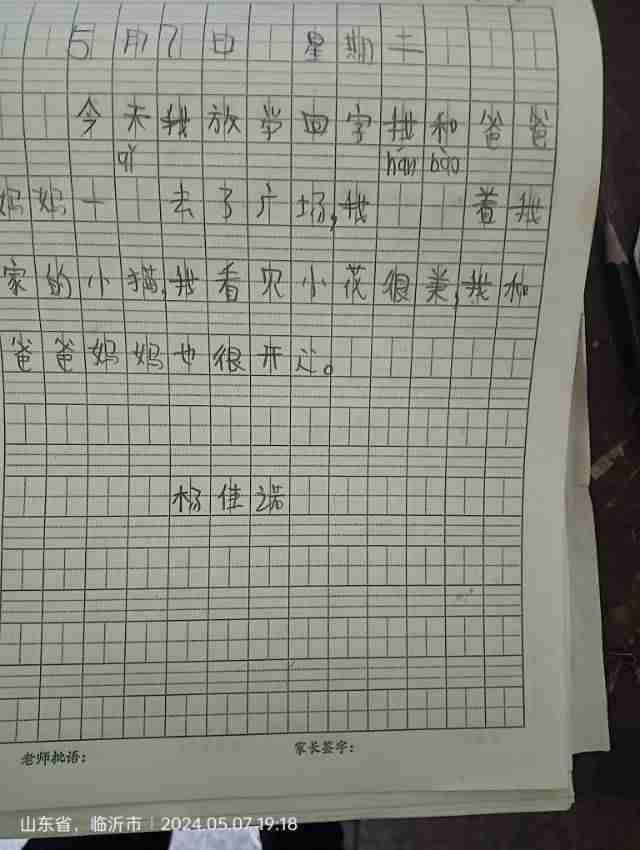 5月7日 星期二
今天我放学回字我和爸爸
qǐ hán bào
妈妈一 去了广场,我 着我
家的小猫,我看见小花很美,我和
爸爸妈妈也很开心。
杨佳诺
老师批语: 家长签字:
山东省,临沂市 | 2024.05.07 19:18